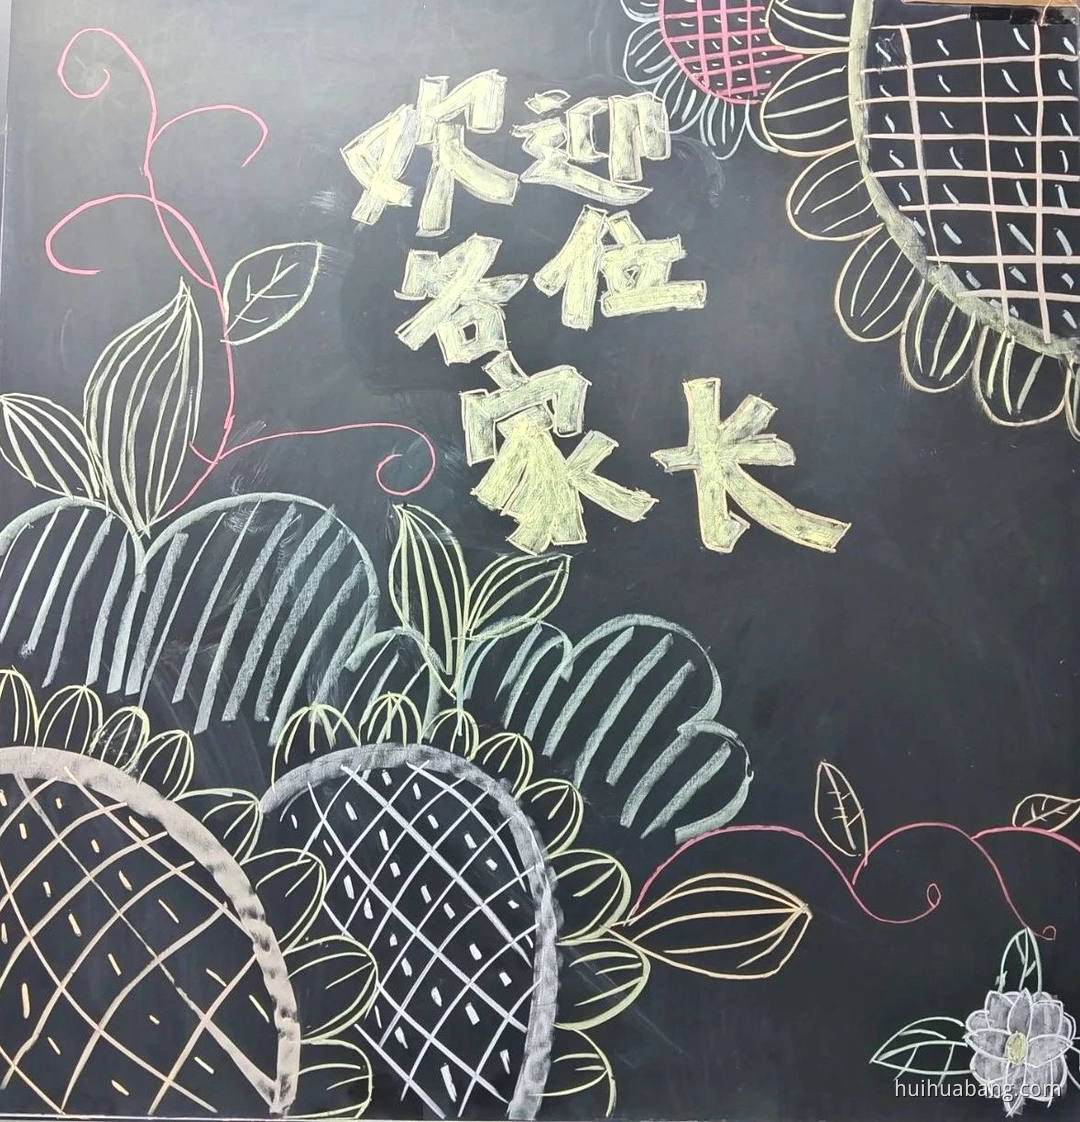 欢迎
各位
家长
huihuabang.com